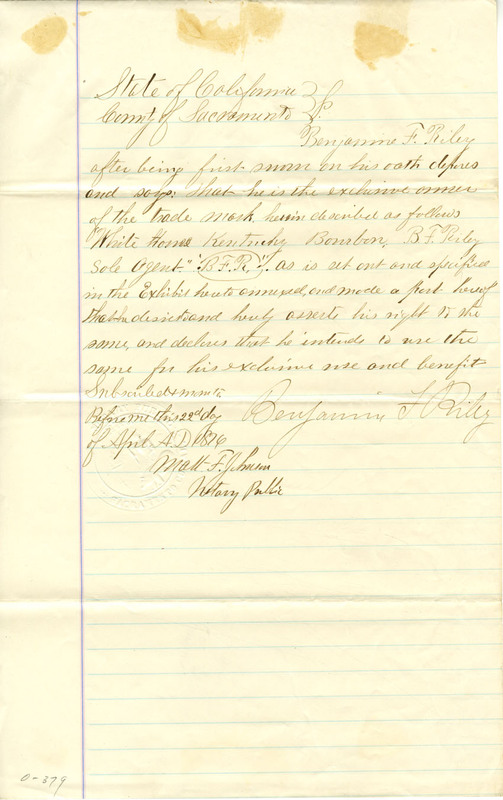 State of California } ss.
County of Sacramento
Benjamine F. Riley
after being first sworn on his oath deposes
and says: that he is the exclusive owner
of the trade mark herein described as follows
"White House Kentucky Bourbon, B.F. Riley
Sole Agent." "B.F.R." as is set out and specified
in the Exhibit hereto annexed, and made a part hereof
that he desires and hereby asserts his right to the
same, and declares that he intends to use the
same for his exclusive use and benefit
Subscribed & sworn to
Before me this 22d day
Benjamin F Riley
of April A.D. 1876
Matt. F. Johnson
Notary Public
0-379